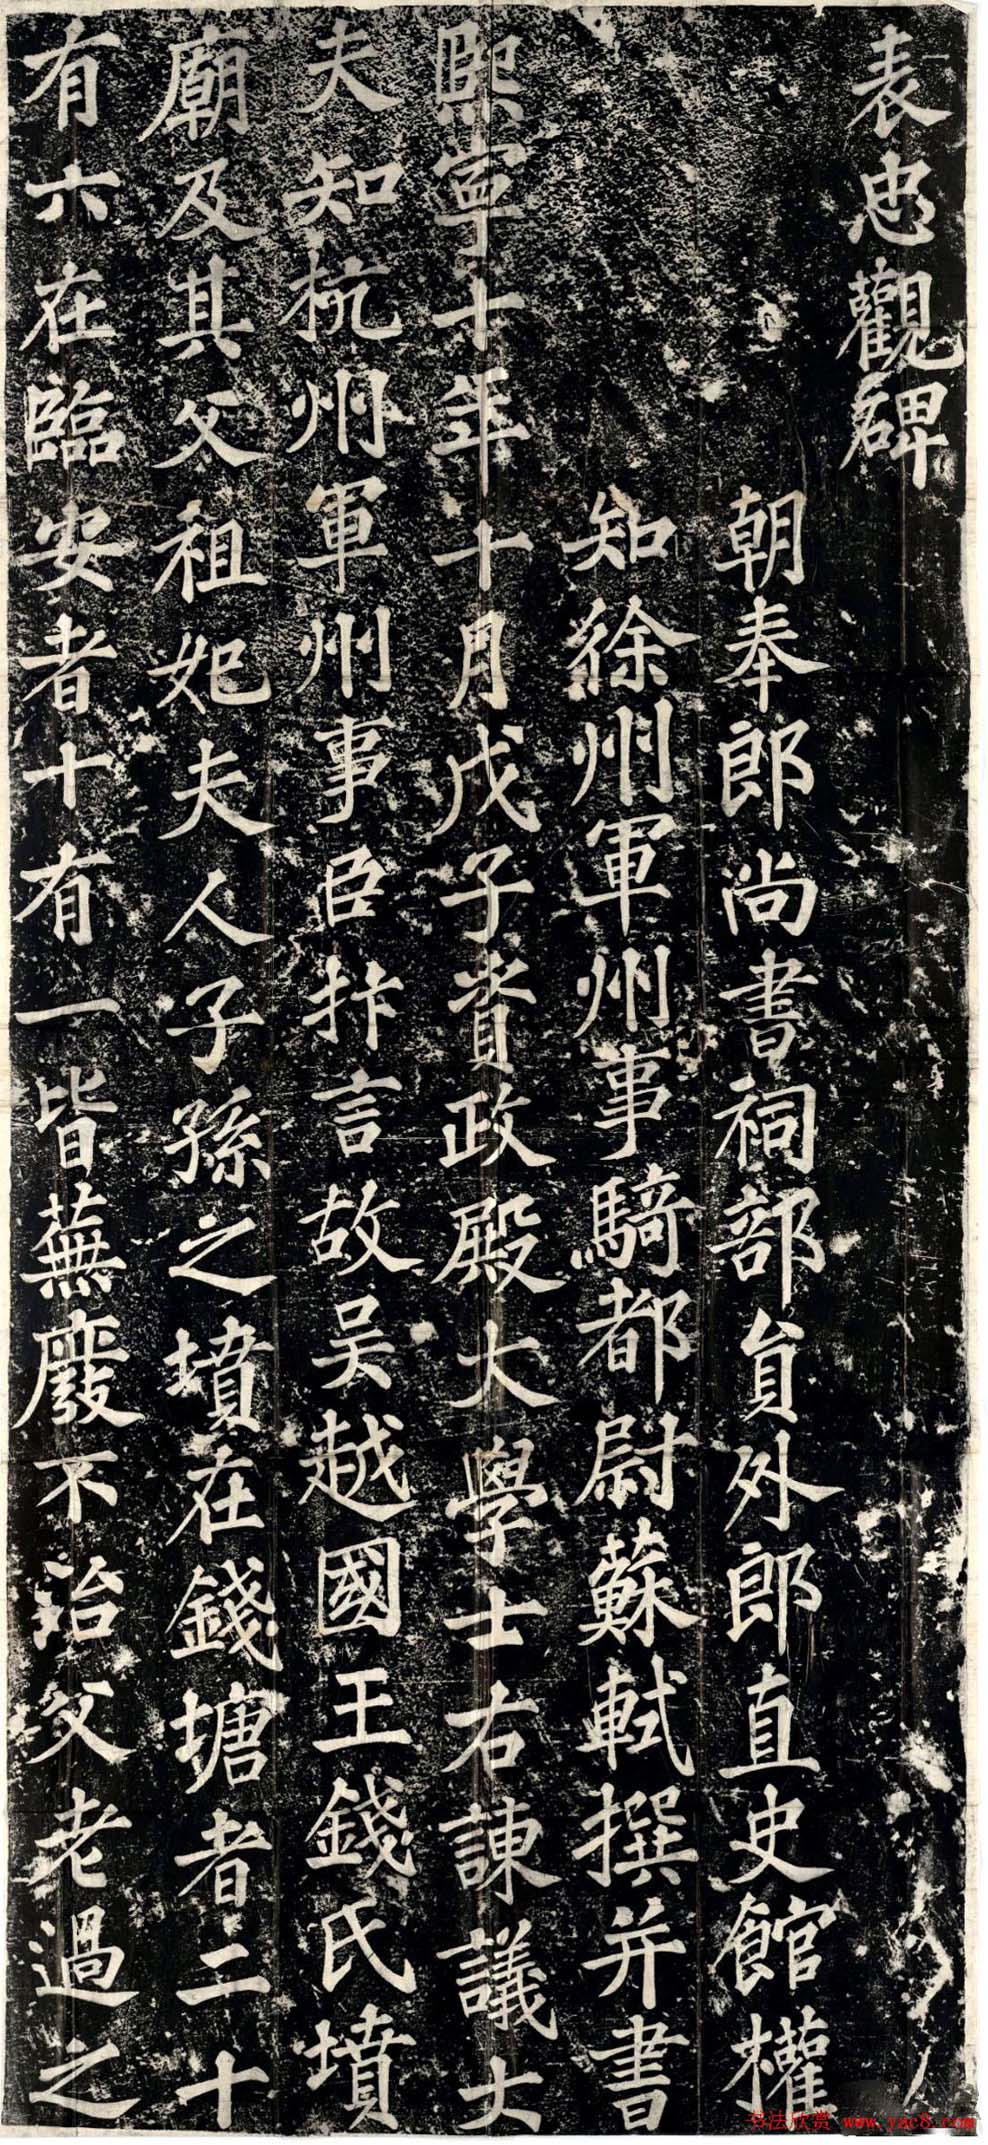 表忠觀碑
朝奉郎尚書祠部員外郎直史館權
知徐州軍州事騎都尉蘇軾撰并書
熙寧十年十月戊子資政殿大學士右諫議大
夫知杭州軍州事臣抃言故吳越國王錢氏墳
廟及其父祖妃夫人子孫之墳在錢塘者二十
有六在臨安者十有一皆蕪廢不治父老過之
书法欣赏 www.yac8.com